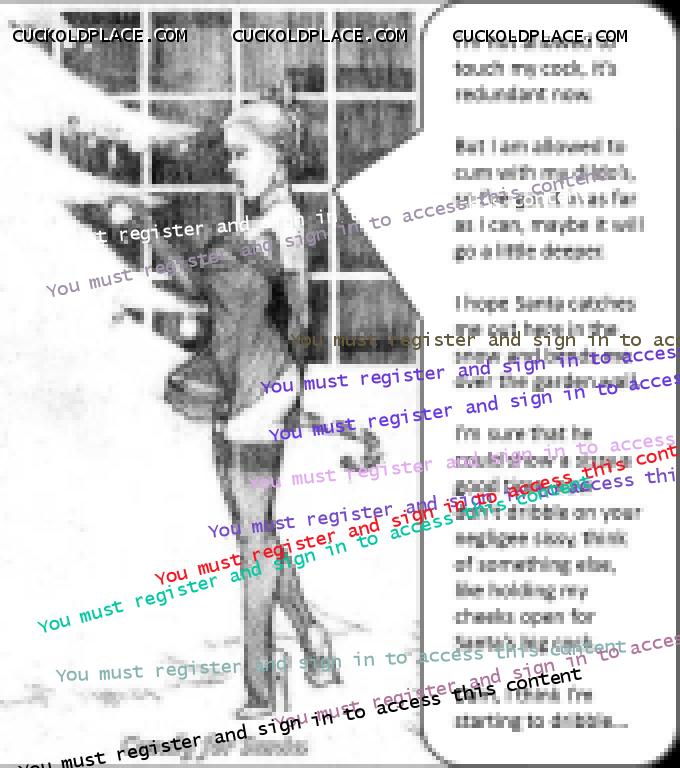 CUCKOLDPLACE.COM CUCKOLDPLACE.COM CUCKOLDPLACE.COM
I'm not allowed to
touch my cock, it's
redundant now.
But I am allowed to
cum with my dildo's,
as far
as I can, maybe it will
go a little deeper.
I hope Santa catches
me out here in the
over the garden wall.
I'm sure that he
good
dribble on your
negligee sissy, think
of something else,
like holding my
cheeks open for
Santa's big cock.
I think I'm
starting to dribble...
t register and sign in
You must register and sign in to access this content
You must register and sign in to ac
You must register and sign in to acces
You must register and sign in to acces
You must register and sign in to access
You must register and sign in to access thi
You must register and sign in to access this cont
You must register and sign in to access this content
You must register and sign in to access this content
You must register and sign in to acces
You must register and sign in to access this content